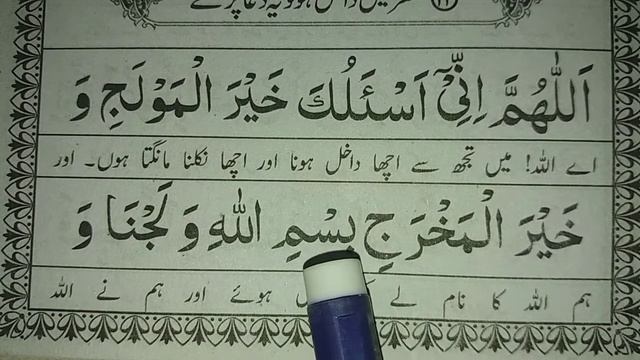 داخل ہو تو یہ دعا پڑھے
اَللّٰهُمَّ اِنِّیْۤ اَسْئَلُكَ خَیْرَ الْمَوْلَجِ وَ
اے اللہ! میں تجھ سے اچھا داخل ہونا اور اچھا نکلنا مانگتا ہوں۔ اور
خَیْرَ الْمَخْرَجِ بِسْمِ اللّٰهِ وَلَجْنَا وَ
ہم اللہ کا نام لے ہوئے اور ہم نے اللہ